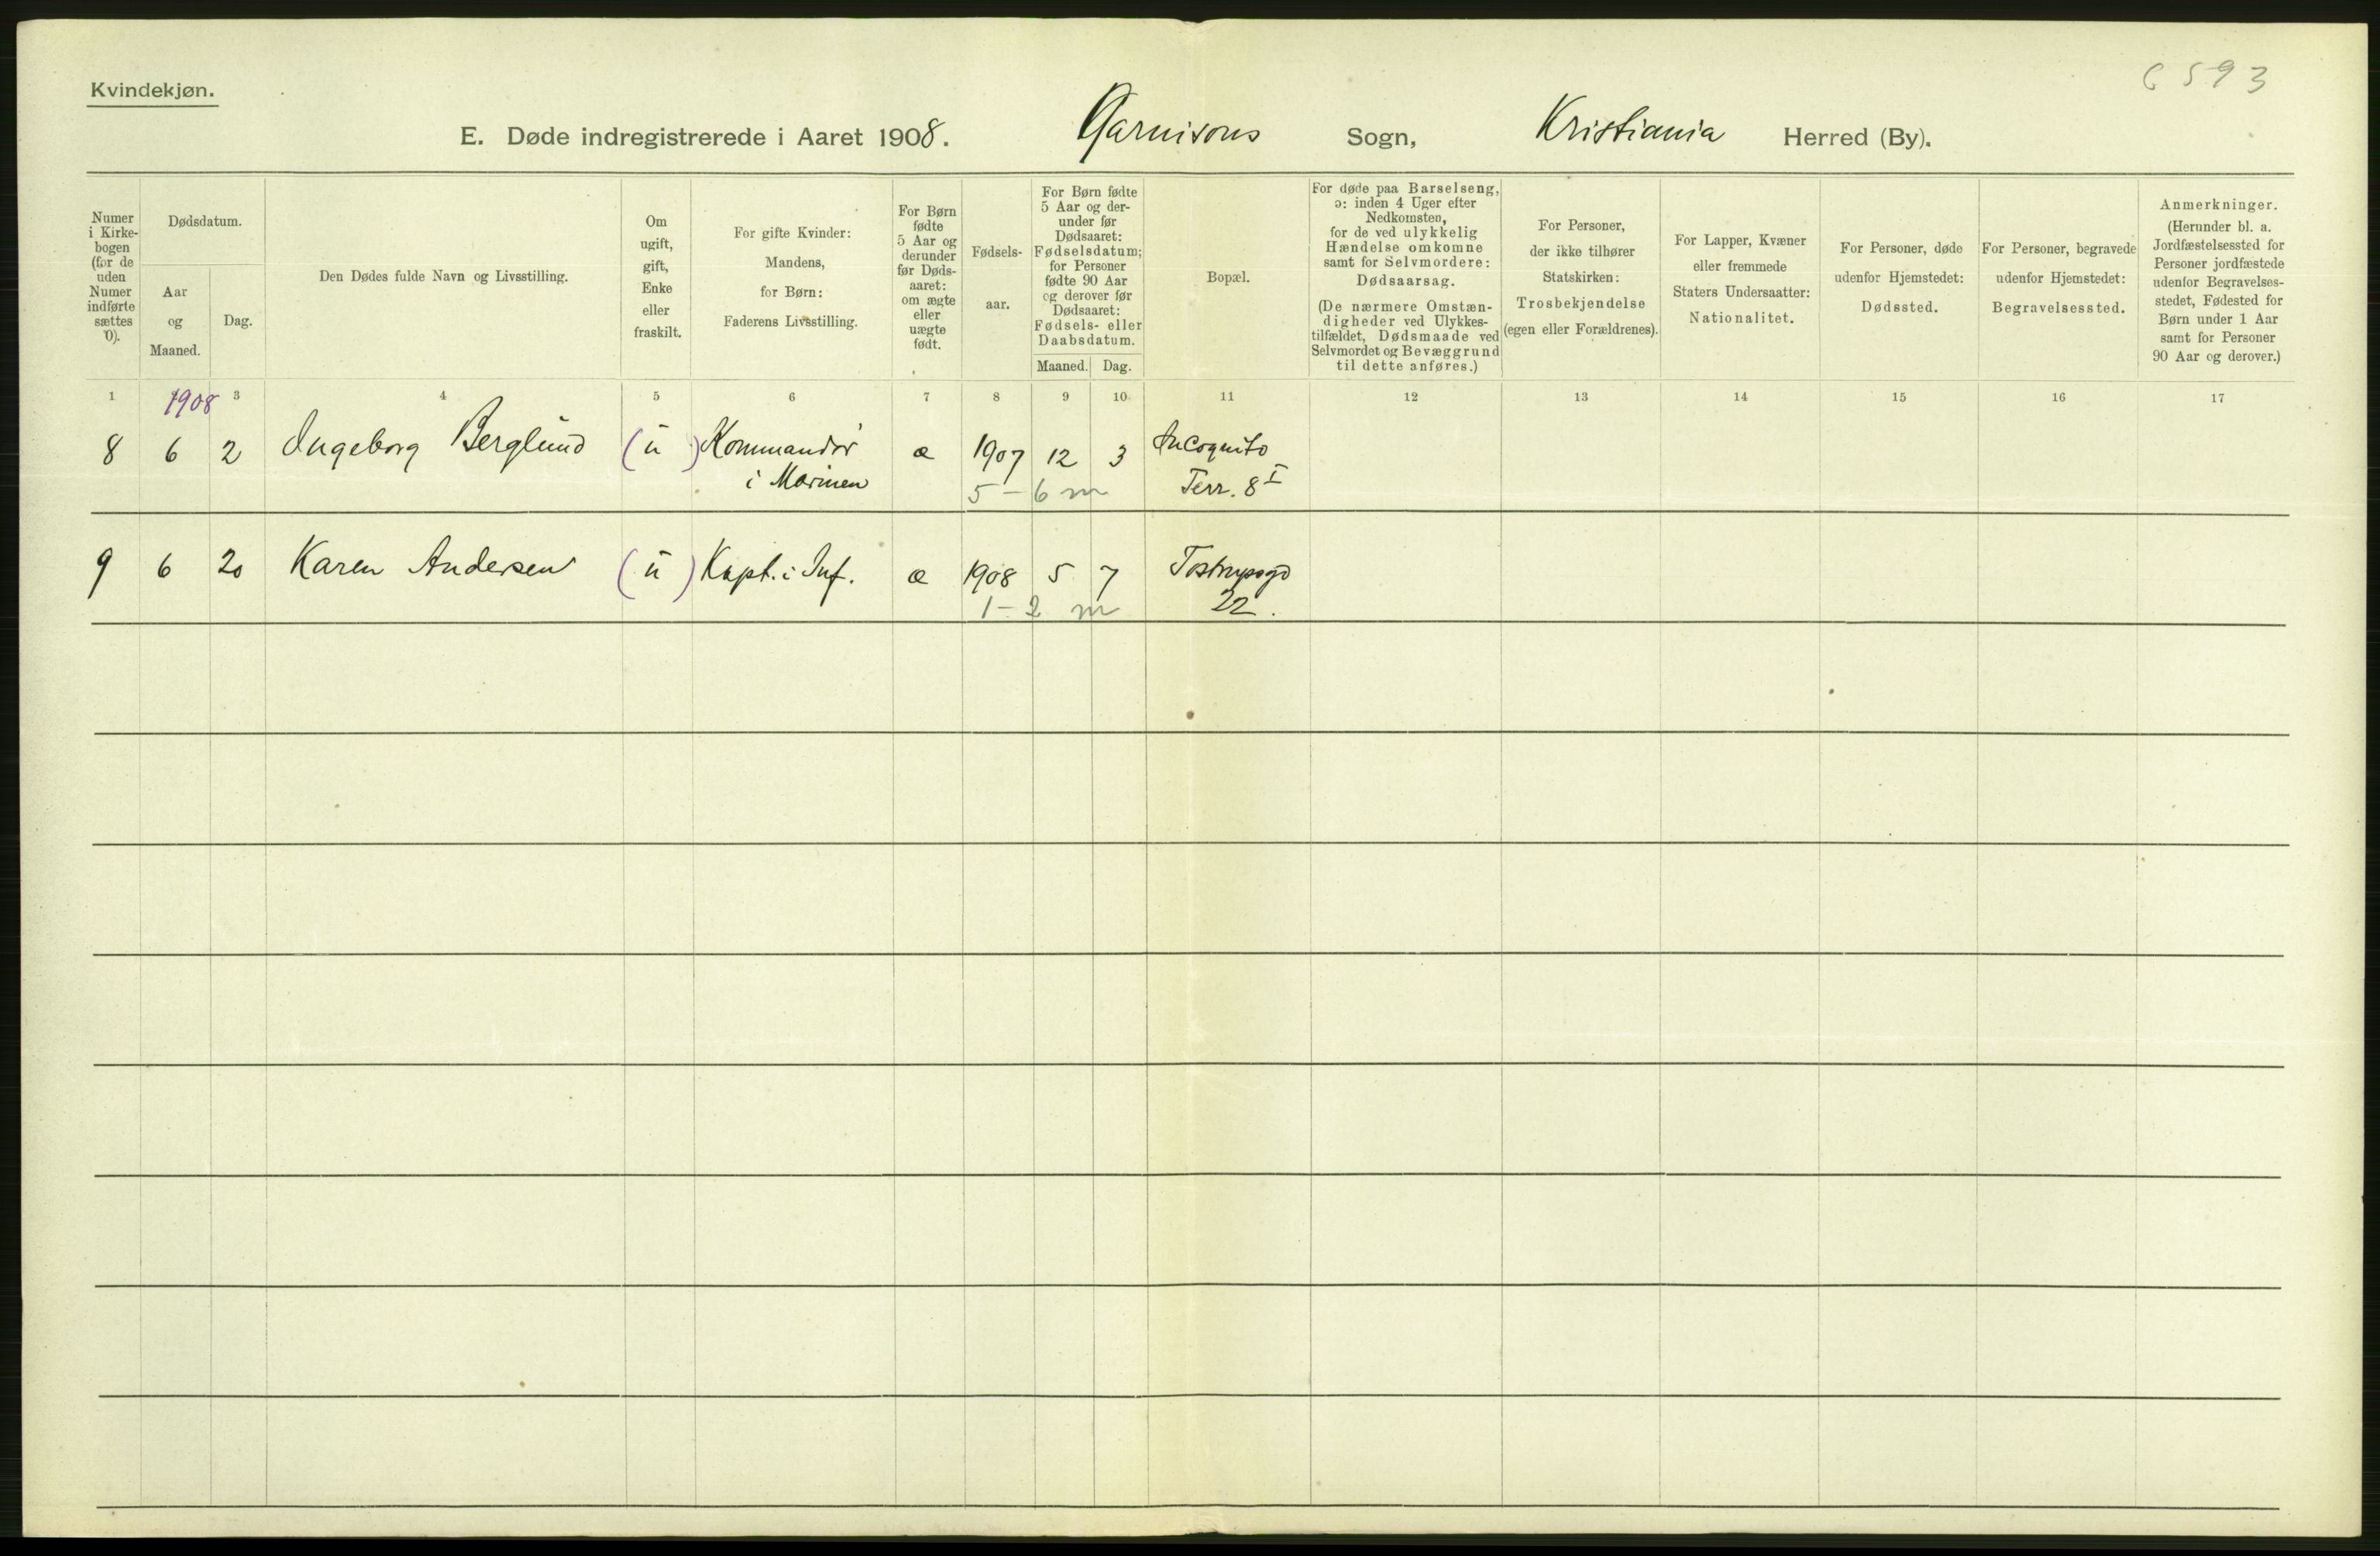 6593
Kvindekjøn.
E. Døde indregistrerede i Aaret 1908. Garnisons Sogn, Kristiania Herred (By).
Numer
i Kirke-
bogen
(for de
uden
Numer
indførte
sættes
0).
Dødsdatum.
Aar
og
Maaned.
Dag.
Den Dødes fulde Navn og Livsstilling.
Om
ugift,
gift,
Enke
eller
fraskilt.
For gifte Kvinder:
Mandens,
for Børn:
Faderens Livsstilling.
For Børn
fødte
5 Aar og
derunder
før Døds-
aaret:
om ægte
eller
uægte
født.
Fødsels-
aar.
For Børn fødte
5 Aar og der-
under før
Dødsaaret:
Fødselsdatum;
for Personer
fødte 90 Aar
og derover før
Dødsaaret:
Fødsels- eller
Daabsdatum.
Maaned. Dag.
Bopæl.
For døde paa Barselseng,
ɔ: inden 4 Uger efter
Nedkomsten,
for de ved ulykkelig
Hændelse omkomne
samt for Selvmordere:
Dødsaarsag.
(De nærmere Omstæn-
digheder ved Ulykkes-
tilfældet, Dødsmaade ved
Selvmordet og Bevæggrund
til dette anføres.)
For Personer,
der ikke tilhører
Statskirken:
Trosbekjendelse
(egen eller Forældrenes).
For Lapper, Kvæner
eller fremmede
Staters Undersaatter:
Nationalitet.
For Personer, døde
udenfor Hjemstedet:
Dødssted.
For Personer, begravede
udenfor Hjemstedet:
Begravelsessted.
Anmerkninger.
(Herunder bl. a.
Jordfæstelsessted for
Personer jordfæstede
udenfor Begravelses-
stedet, Fødested for
Børn under 1 Aar
samt for Personer
90 Aar og derover.)
1 1908 3 4 5 6 7 8 9 10 11 12 13 14 15 16 17
8 6 2 Ingeborg Berglund (u) Kommandør æ 1907 12 3 Incognito
i Marinen 5-6 m Terr. 8 I
9 6 20 Karen Andersen (u) Kapt. i Inf. æ 1908 5 7 Tostrupsgd
1-2 m 22.